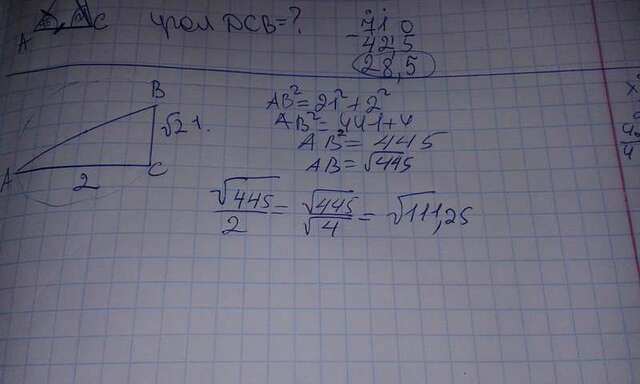 A C угол DCB=?
71 0
- 42 5
28,5
B
√21.
A
2
C
AB²=21²+2²
AB²=441+4
AB²=445
AB=√445
√445/2 = √445/√4 = √111,25
x
4